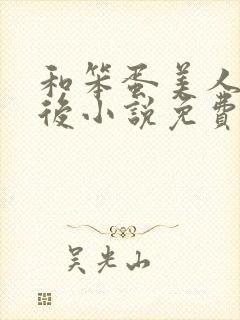 和笨蛋美人
後小說免費
吴光山